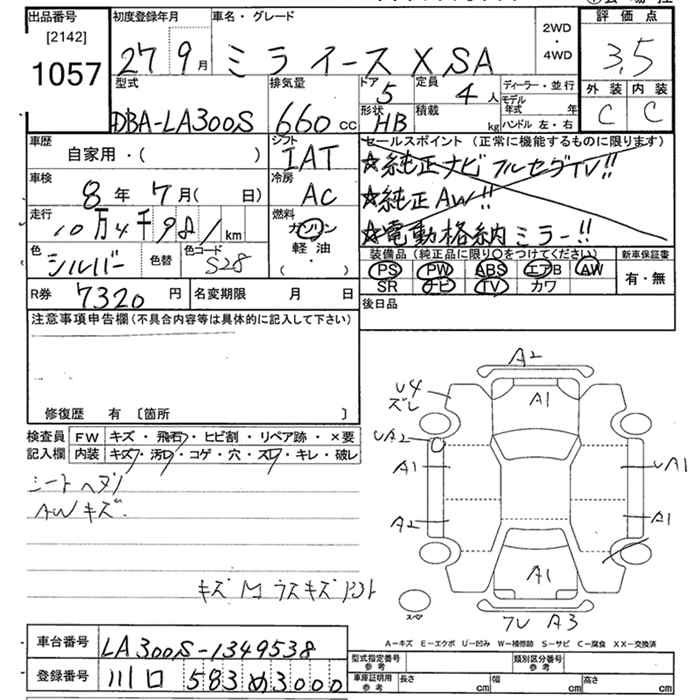 出品番号 初度登録年月 車名・グレード 2WD ・ 4WD 評価点
[2142]
1057 27 9月 ミライース X SA 3,5
型式 排気量 ドア 5 定員 4人 ディーラー・並行 外装 内装
DBA-LA300S 660cc 形状 HB 積載 kg モデル年式 年 ハンドル 左・右 C C
車歴 自家用・( ) シフト IAT セールスポイント (正常に機能するものに限ります)
☆純正ナビ フルセグTV!!
車検 8年 7月( 日) 冷房 AC ☆純正AW!!
走行 10万4千981km 燃料 ガソリン 軽油 ( ・ ) ☆電動格納ミラー!!
色 シルバー 色替 色コード S28 装備品 (純正品に限り○をつけてください) 新車保証書
PS PW ABS エアB AW 有・無
SR ナビ TV カワ
R券 7320円 名変期限 月 日 後日品
注意事項申告欄(不具合内容等は具体的に記入して下さい)
修復歴 有 [箇所 ]
検査員 FW キズ・飛石・ヒビ割・リペア跡・×要
記入欄 内装 キズ・汚レ・コゲ・穴・スレ・キレ・破レ
AWキズ
A2
U4
ズレ
A1
UA2
A1
UA1
A2
A1
A1
スペア
A3
A-キズ E-エクボ U-凹み W-補修跡 S-サビ C-腐食 XX-交換済
車台番号 LA300S-1349538
登録番号 川口 583 め 3000
型式指定番号 参考 類別区分番号 参考
車庫証明用 参考 長さ cm 幅 cm 高さ cm